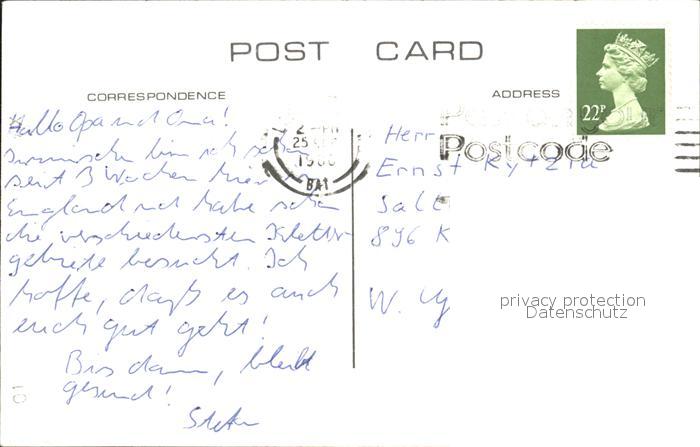 POST CARD
CORRESPONDENCE
ADDRESS
22P
Postcode
25
BA1
Hallo Opa und Oma!
Inzwischen bin ich schon
seit 3 Wochen hier in
England und habe schon
die verschiedensten Kletter
gebiete besucht. Ich
hoffe, daß es auch
euch gut geht!
Bis dann, bleibt
gesund!
Stefan
Herr
Ernst
896 K
W.
privacy protection
Datenschutz